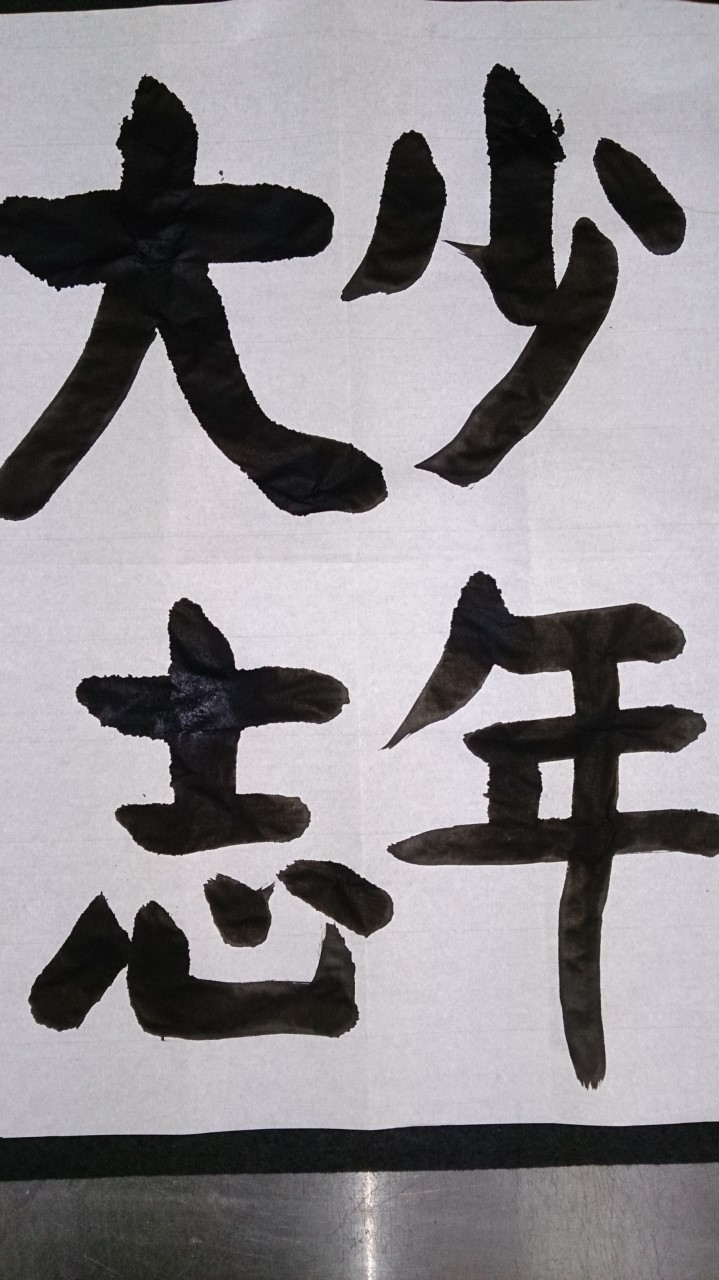 少年
大志